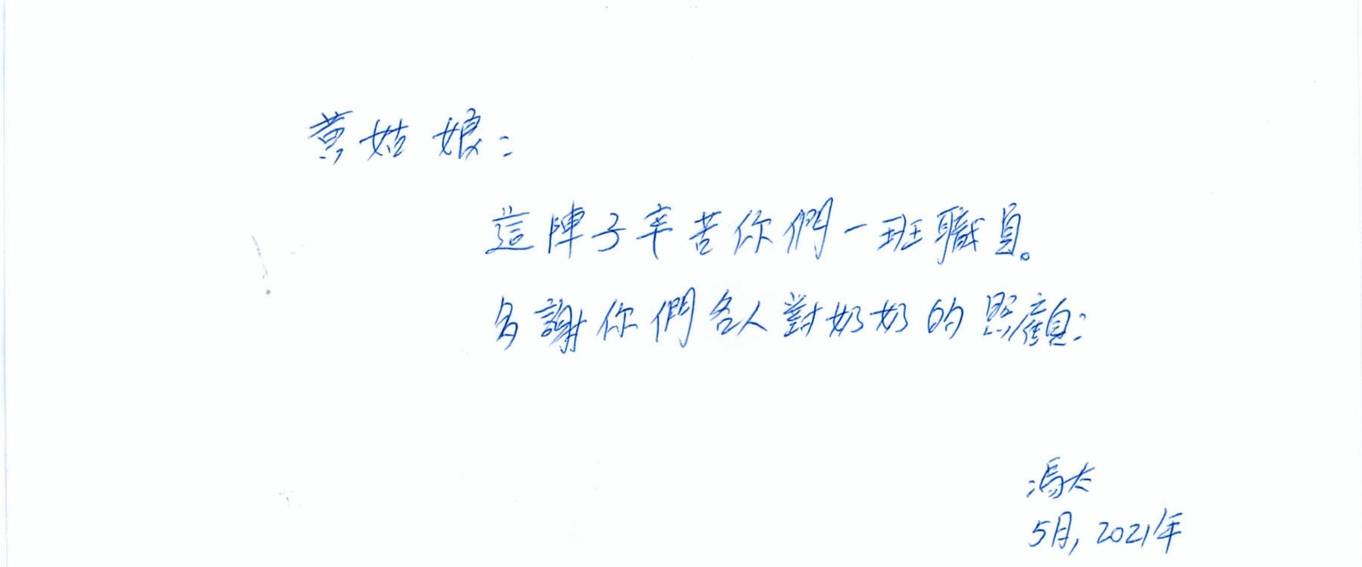 黃姑娘：
這陣子辛苦你們一班職員。
多謝你們各人對奶奶的照顧：
馮太
5月, 2021年